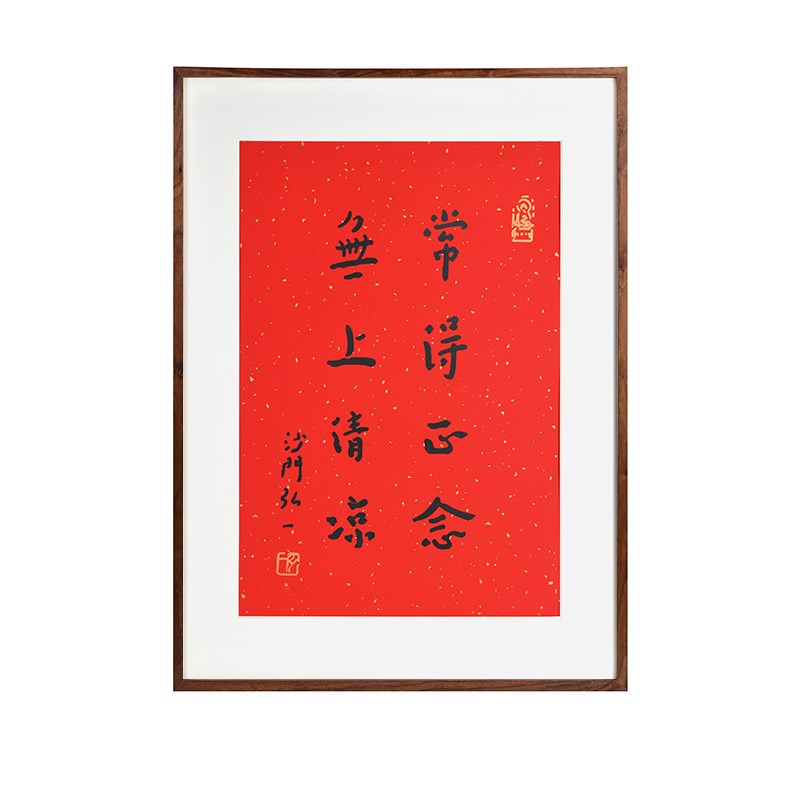 常得正念
無上清涼
沙門弘一